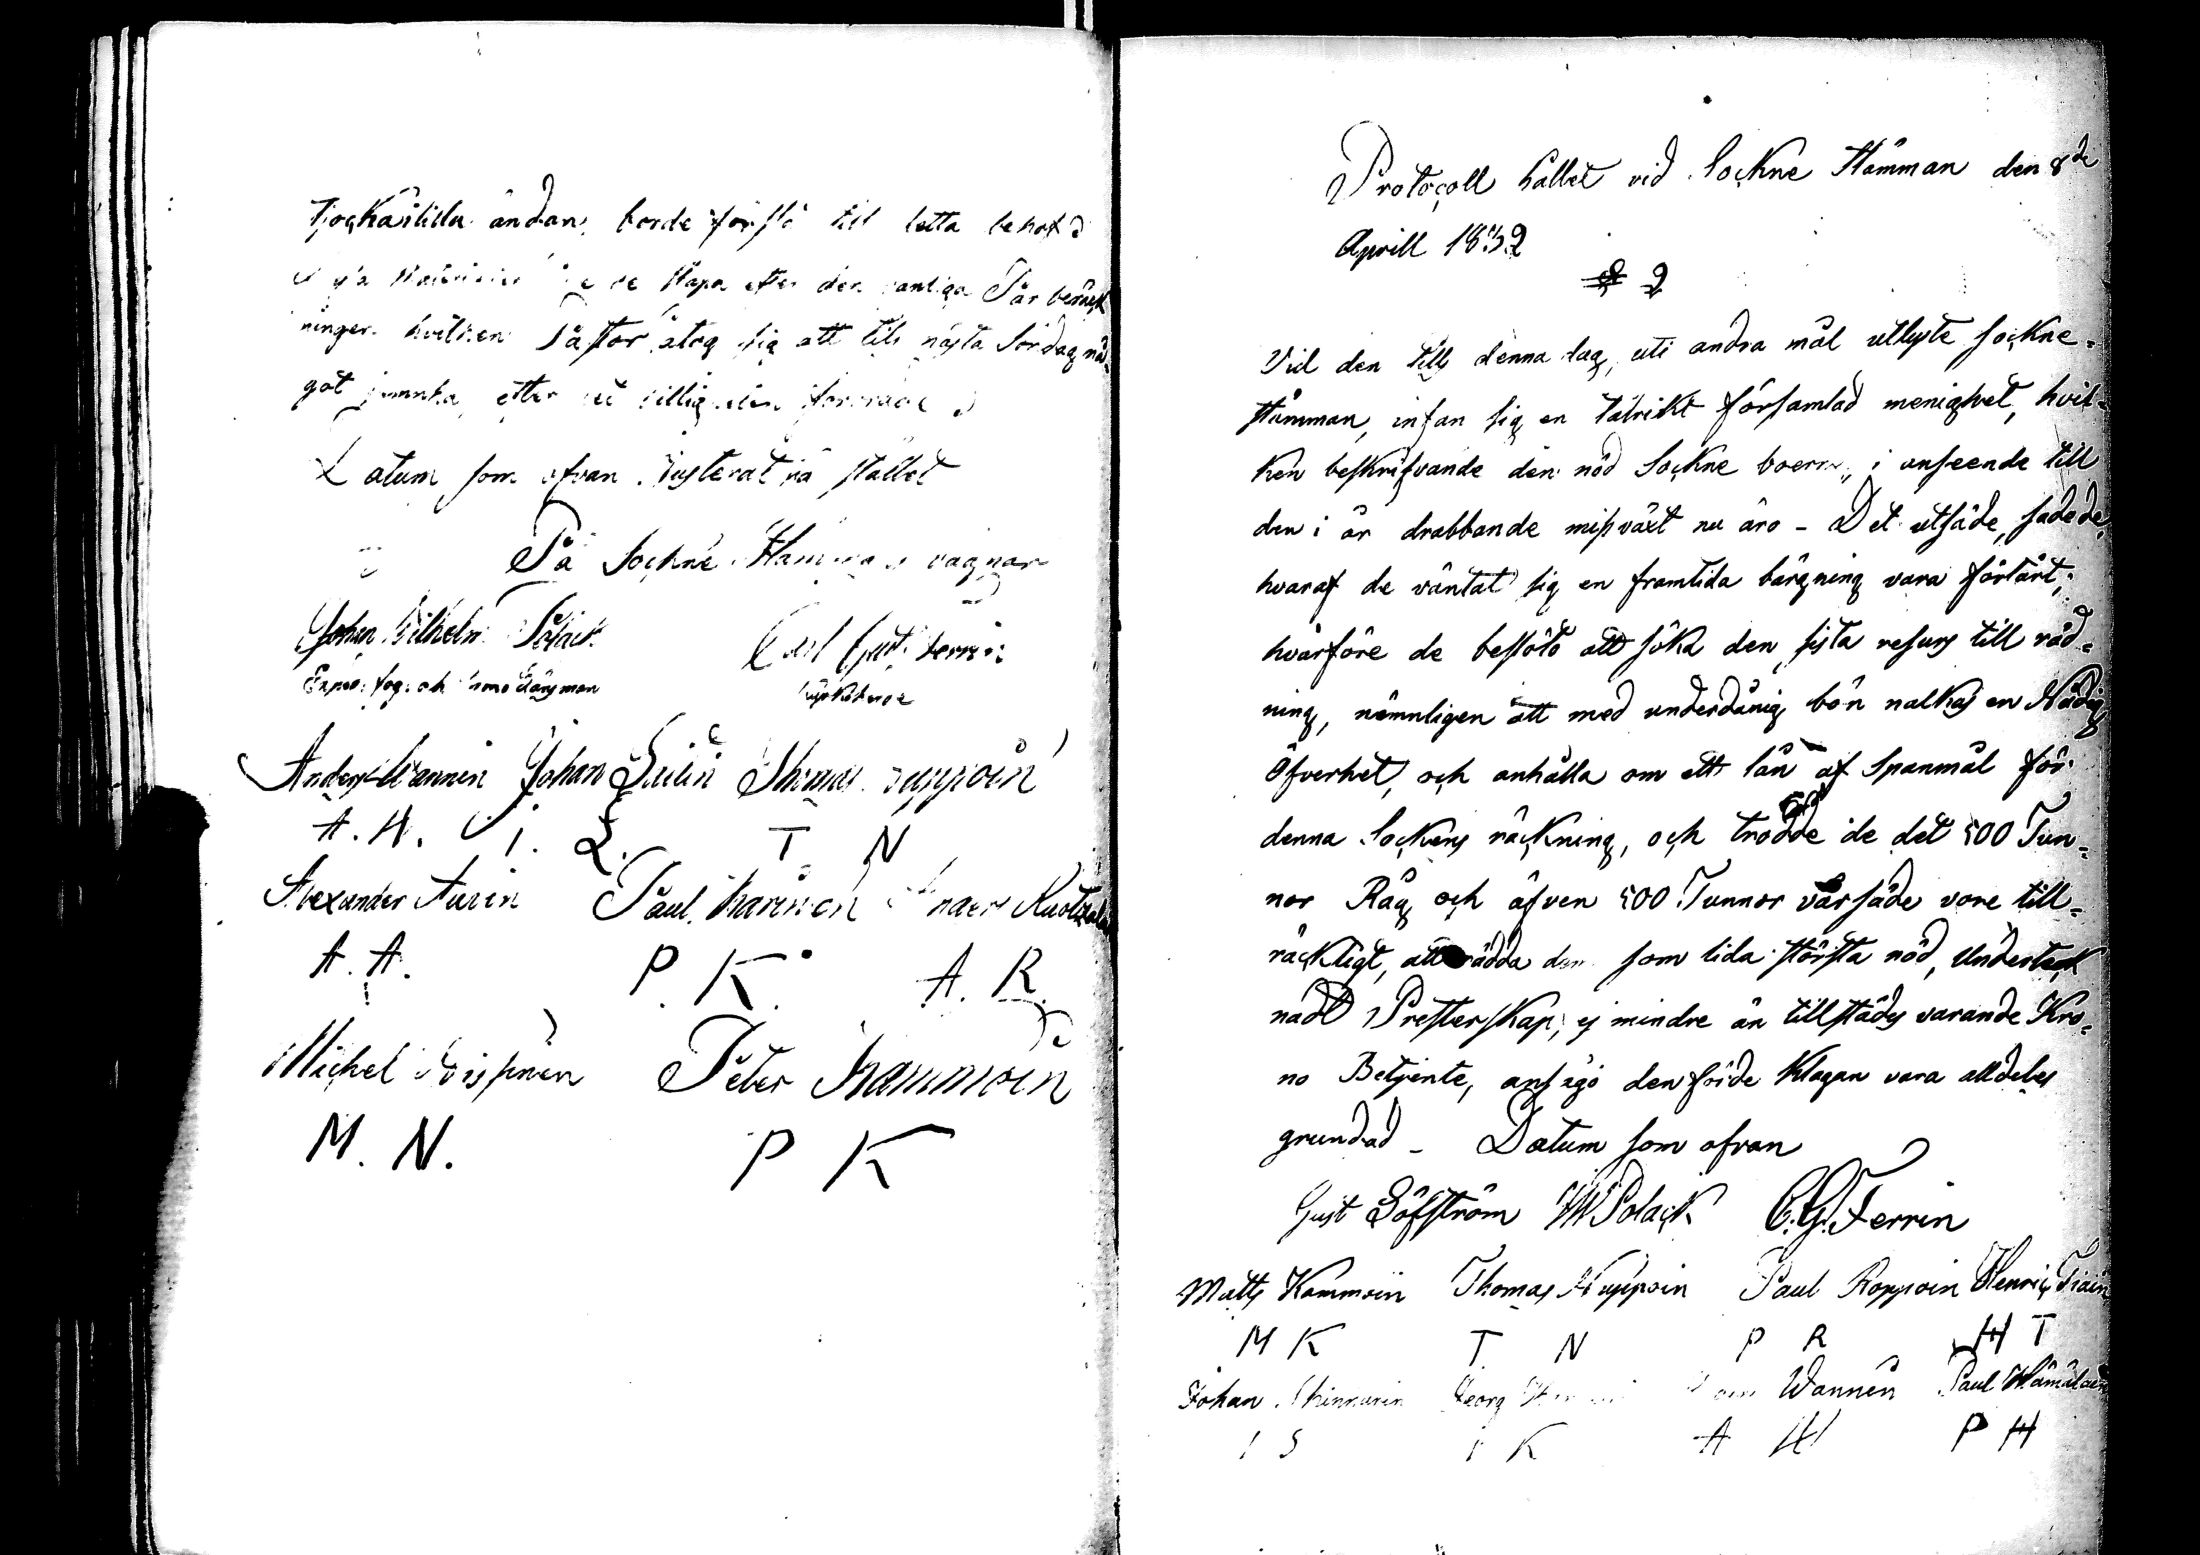 ändan, borde förslå till detta behof
Stapa efter den vanliga
ninger. hvilken Pastor åtog sig att till nästa Söndag nå-
got efter
Datum som ofvan Justerat på stället
På Sockne Stämmans vägnar
Johan Wilhelm Polack Carl Gust. Ferrin
Länsman
Anders Wannin Johan Thomas Nuppoin
A. W. I. L. T N
Alexander Auvin Paul Kammoin
A. A. P. K. A. R.
Michel Peter Kammoin
M. N. P K
Protocoll hållet vid Sockne Stämman den 8de
Aprill 1832
§ 2
Vid den till denna dag, uti andra mål utlyste Sockne-
stämman, infan sig en talrikt församlad menighet, hvil-
ken beskrifvande den nöd Sockne boerne, i anseende till
den i år drabbande missväxt nu äro - Det utsäde, sade de,
hvaraf de väntat sig en framtida bärgning vara förtärt,
hvarföre de beslöto att söka den sista resurs till räd-
ning, nämnligen att med underdånig bön nalkas en Nådig
Öfverhet, och anhålla om ett lån af Spanmål för
denna Sockens räckning, och trodde de det 500 Tun-
nor Råg och äfven 500 Tunnor vårsäde vore till-
räckligt, att rädda dem som lida största nöd, Underteck
nadt Presterskap, ej mindre än tillstädes varande Kro-
no Betjente, ansågo den förde Klagan vara alldeles
grundad - Datum som ofvan
Gust Löfström JW Polack C. G. Ferrin
Matts Kammoin Thomas Nuppoin Paul Roppoin Henric Tiain
M K T N P R H T
Johan Georg Wannen Paul Hämäläin
I S K A W P H